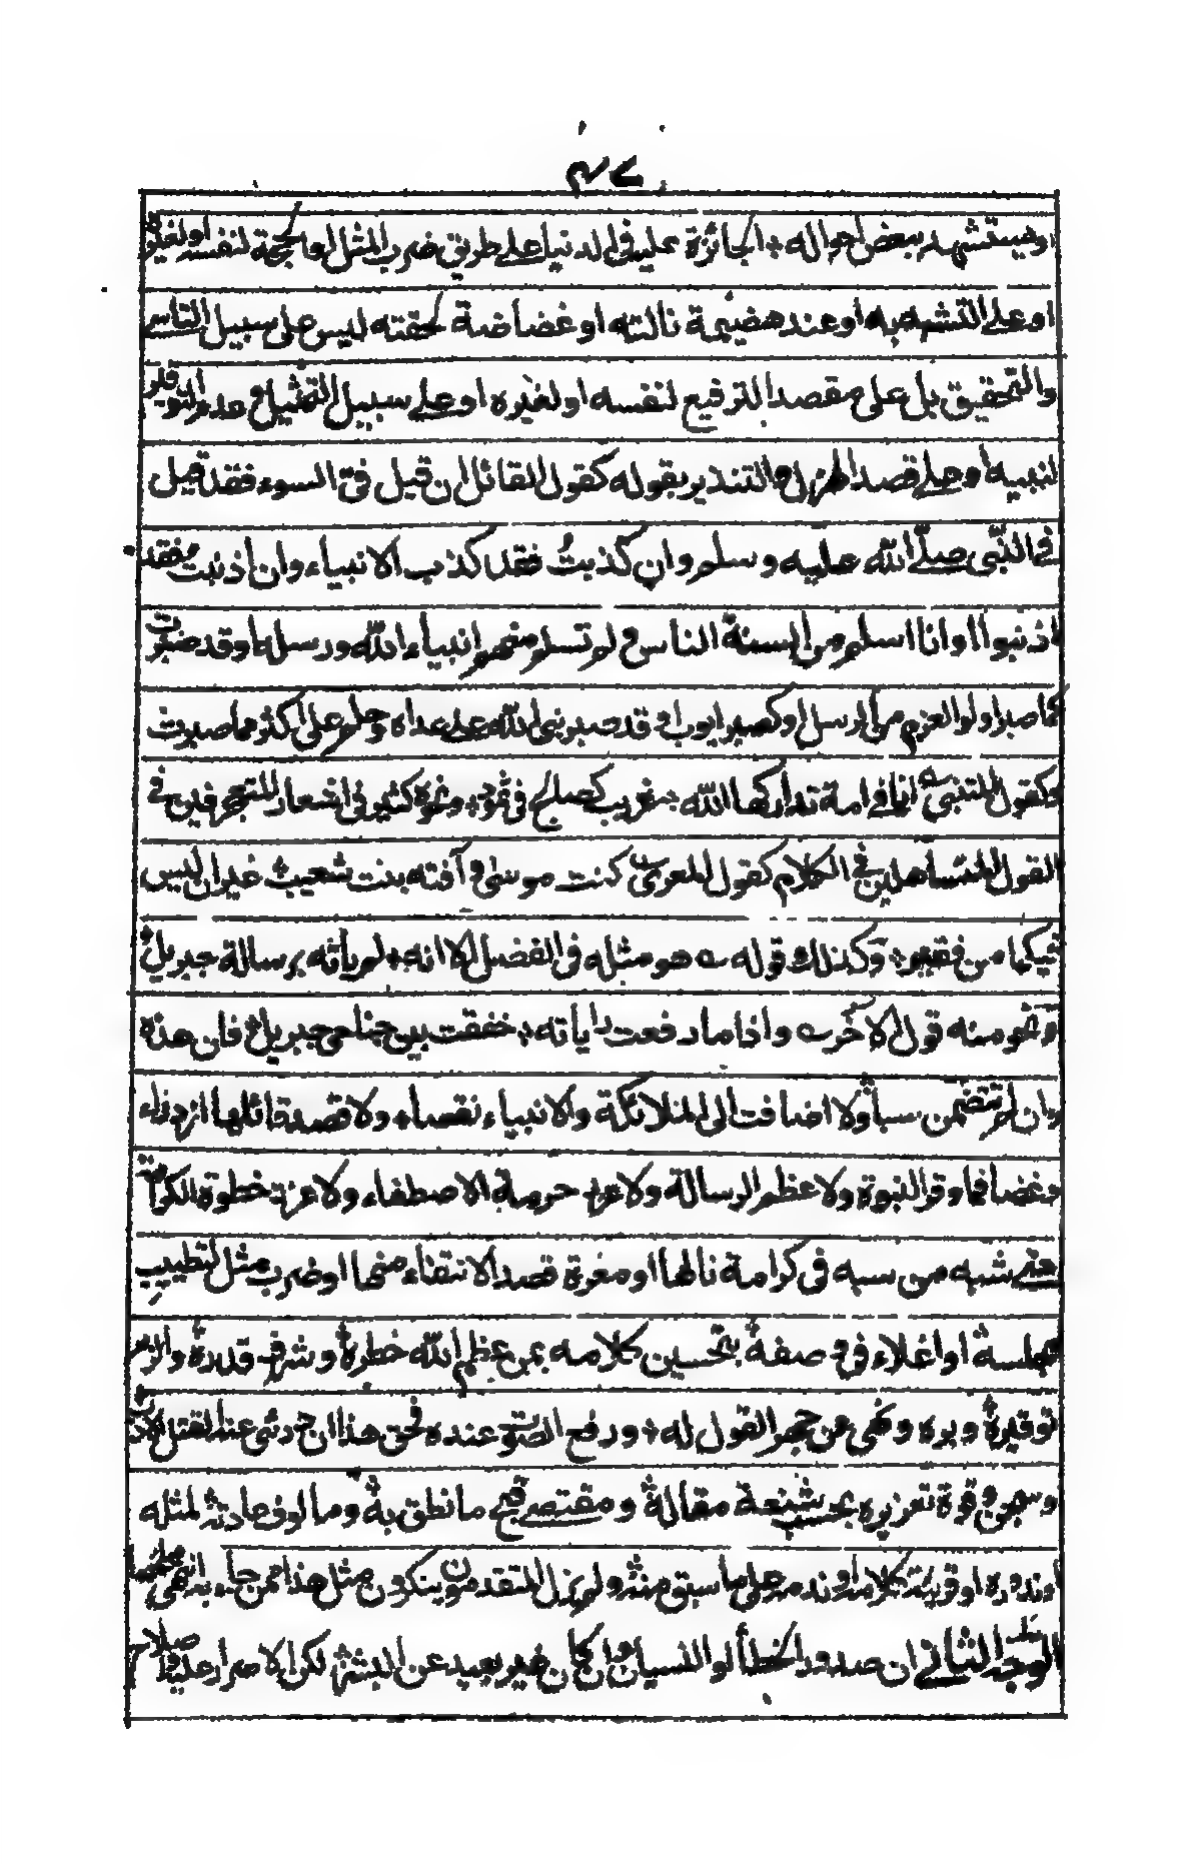 ٤٧
او يستشهد ببعض احواله الجائزة عليه في الدنيا على طريق ضرب المثل والحجة لنفسه او لغيره
او على التشبه به او عند هضيمة نالته او غضاضة لحقته ليس على سبيل التاسي
والتحقيق بل على مقصد الترفيع لنفسه او لغيره او على سبيل التمثيل وعدم التوقير
لنبيه او على قصد الهزل والتنذير بقوله كقول القائل ان قيل فيّ السوء فقد قيل
في النّبي صلّى الله عليه وسلم وان كذبت فقد كذب الانبياء وان اذنبت فقد
اذنبوا او انا اسلم من السنة الناس ولم تسلم منهم انبياء الله ورسله او قد صبرت
كما صبر اولو العزم من الرسل او كصبر ايوب او قد صبر نبي الله على عداه وحلم على اكثر مما صبرت
وكقول المتنبي انا في امة تداركها الله غريب كصالح في ثمود ونحوه كثير في اشعار المتعجرفين في
القول المتساهلين في الكلام كقول المعري كنت موسى وآفته بنت شعيب غير ان ليس
فيكما من فقير وكذلك قوله هو مثله في الفضل الا انه لم يأته برسالة جبريل
ونحو منه قول الآخر واذا ما رفعت راياته خفقت بين جناحي جبريل فان هذه
وان لم تتضمن سبا ولا اضافت الى الملائكة والانبياء نقصا ولا قصد قائلها ازدراء
وغضا فما وقر النبوة ولا عظم الرسالة ولا عزر حرمة الاصطفاء ولا عزز حظوة الكرامة
حتى شبه من شبه في كرامة نالها او معرة قصد الانتفاء منها او ضرب مثل لتطييب
مجلسه او اغلاء في وصفه بتحسين كلامه بمن عظم الله خطره وشرف قدره والزم
توقيره وبره ونهى عن جهر القول له ورفع الصوت عنده فحق هذا ان درئ عنه القتل الادب
وسجن وقوة تعزيره بحسب شنعة مقاله ومقتضى قبح ما نطق به ومالوف عادته لمثله
او ندوره او قرينة كلامه او ندمه على ما سبق منه ولم يزل المتقدمون ينكرون مثل هذا ممن جاء به انتهى
الوجه الثاني ان صدور الخطأ والنسيان وان كان غير بعيد عن البشر لكن الاصرار عليه